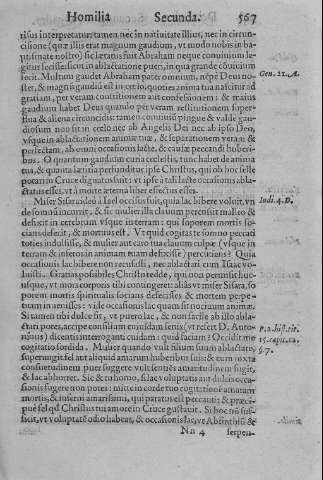 Homilia Secunda. 567
tisus interpretatur: tamen nec in natiuitate illius, nec in circun-
cisione (quæ illis erat magnum gaudium, vt modo nobis in ba-
ptismate nostro) sic lætatus fuit Abraham neque conuiuium le-
gitur fecisse sicut in ablactatione pueri, in qua grande cõuiuium
fecit. Multum gaudet Abraham pater omnium, nẽpè Deus no-
ster, & magnũ gaudiũ est in cœlo, quoties anima tua nascitur ad
gratiam, per veram contritionem aut confessionem: & maius
gaudium habet Deus quando per veram restitutionem super-
flua & aliena circuncidis: tamen conuiuiũ pingue & valde gau-
diosum non fit in cœlo nec ab Angelis Dei nec ab ipso Deo,
vsque in ablactationem animæ tuæ, & separationem veram &
perfectam, ab omni occasionis lacte, & causæ peccandi huberi-
bus. O quantum gaudium curia cœlestis, tunc habet de anima
tua, & quanta lætitia perfunditur ipse Christus, qui ob hoc felle
potari in Cruce dignatus fuit: vt ipse à tali lacte occasionis abla-
ctatus esses, vt à morte æterna liber effectus esses.
Miser Sisara ideò à Iael occisus fuit, quia lac bibere voluit, vn
de somnũ incurrit, & sic mulier illa clauum percussit malleo &
defixit in cerebrum vsque in terram: qui soporem mortis so-
cians defecit, & mortuus est. Vt quid cogitas te somno peccati
toties indulsisse, & mulier aut caro tua clauum culpæ (vsque in
terram & inferos in animam tuam defixisse) percutiens? Quia
occasionis lac bibere non recusasti, nec ablactari cum Isaac vo-
luisti. Gratias possibiles Christo redde, qui non permisit huc-
vsque, vt mors corporis tibi contingeret: aliàs vt miser Sisara, so
porem mortis spiritualis socians defecisses & mortem perpe-
tuam inuenisses: vide occasionis lac quam sit nociuum animæ.
Si tamen tibi dulce sit, vt puero lac, & non facilè ab illo abla-
ctari potes, accipe consilium cuiusdam senis (vt refert D. Anto-
ninus) dicentis interroganti cuidam: quid faciam? Occidit me
cogitatio sordida. Mulier quando vult filium suum ablactare,
superungit fel aut aliquid amarum huberibus suis: & cum iuxta
consuetudinem puer suggere vult sentiẽs amaritudinem fugit,
& lac abhorret. Sic & tu homo, si lac voluptatis aut dulcis occa-
sionis sugere non potes: mitte in corde tuo cogitationẽ amaram
mortis, & inferni amarissimi, qui paratus est peccanti: & præci-
puè fel qđ Christus tui amore in Cruce gustauit. Si hoc nũ suf-
ficit, vt voluptatẽ odio habeas, & occasionis lac, vt Absinthiũ &
Nn 4 serpen-
Gen. 21. A.
Iudi. 4. D.
p. 2. hist. tit.
15. capit. 12.
§. 7.